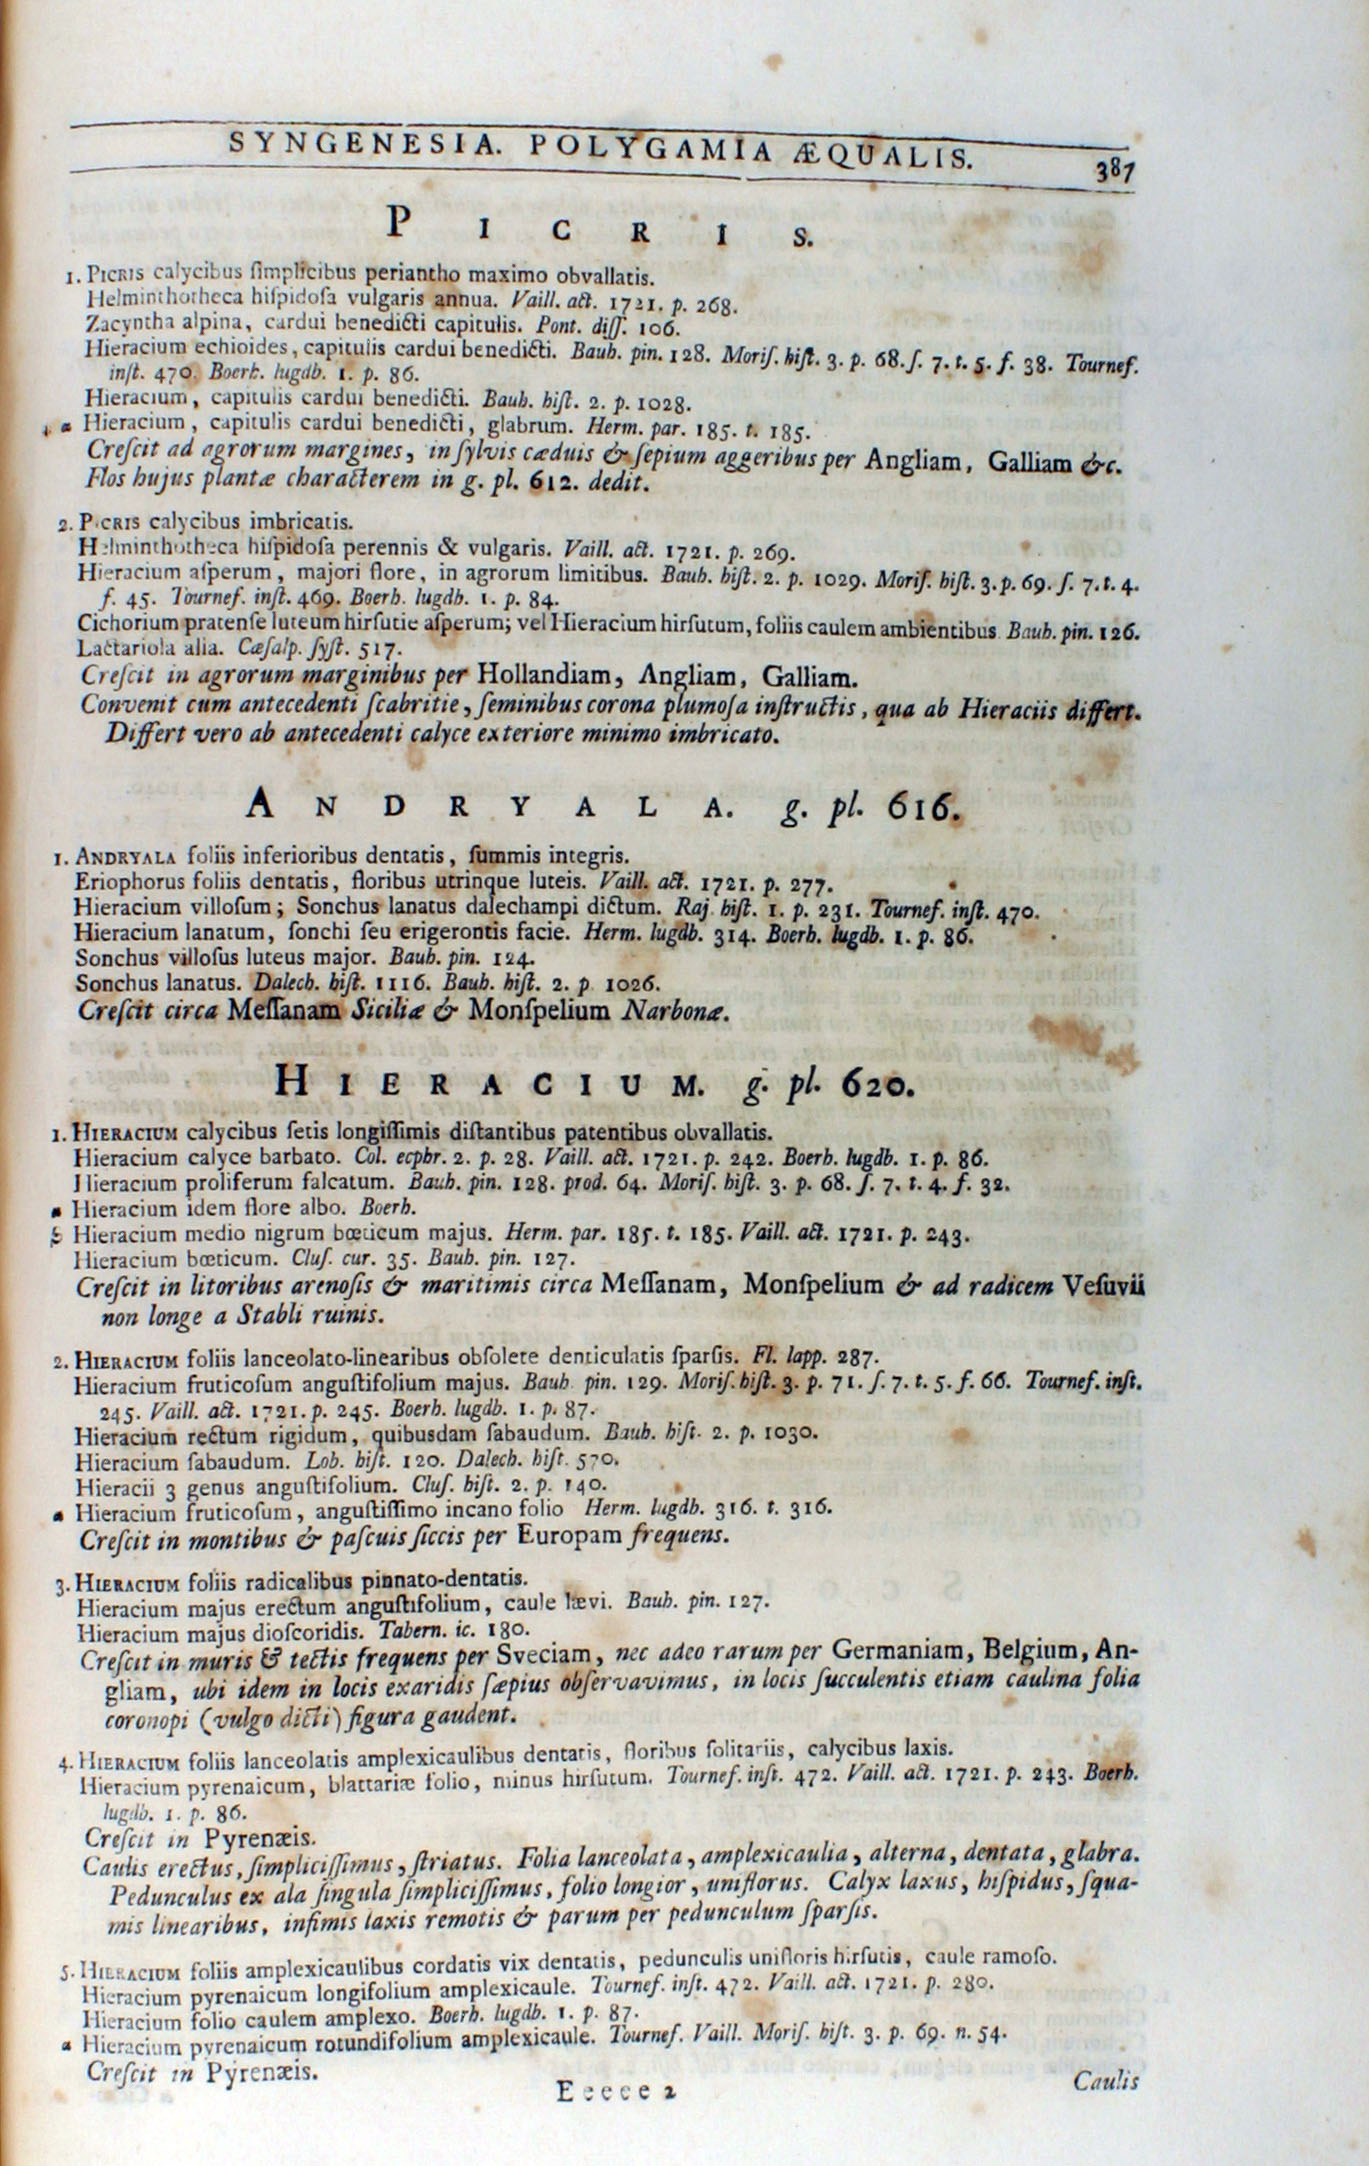 SYNGENESIA. POLYGAMIA ÆQUALIS. 387
PICRIS.
1. PICRIS calycibus ſimplicibus periantho maximo obvallatis.
Helminthotheca hiſpidoſa vulgaris annua. Vaill. act. 1721. p. 268.
Zacyntha alpina, cardui benedicti capitulis. Pont. diſſ. 106.
Hieracium echioides, capitulis cardui benedicti. Bauh. pin. 128. Moriſ. hiſt. 3. p. 68. ſ. 7. t. 5. f. 38. Tournef.
inſt. 470. Boerh. lugdb. 1. p. 86.
Hieracium, capitulis cardui benedicti. Bauh. hiſt. 2. p. 1028.
Hieracium, capitulis cardui benedicti, glabrum. Herm. par. 185. t. 185.
Creſcit ad agrorum margines, in ſylvis cæduis & ſepium aggeribus per Angliam, Galliam &c.
Flos hujus plantæ characterem in g. pl. 612. dedit.
2. PICRIS calycibus imbricatis.
Helminthotheca hiſpidoſa perennis & vulgaris. Vaill. act. 1721. p. 269.
Hieracium aſperum, majori flore, in agrorum limitibus. Bauh. hiſt. 2. p. 1029. Moriſ. hiſt. 3. p. 69. ſ. 7. t. 4.
f. 45. Tournef. inſt. 469. Boerh. lugdb. 1. p. 84.
Cichorium pratenſe luteum hirſutie aſperum; vel Hieracium hirſutum, foliis caulem ambientibus Bauh. pin. 126.
Lactariola alia. Cæſalp. ſyſt. 517.
Creſcit in agrorum marginibus per Hollandiam, Angliam, Galliam.
Convenit cum antecedenti ſcabritie, ſeminibus corona plumoſa inſtructis, qua ab Hieraciis differt.
Differt vero ab antecedenti calyce exteriore minimo imbricato.
ANDRYALA. g. pl. 616.
1. ANDRYALA foliis inferioribus dentatis, ſummis integris.
Eriophorus foliis dentatis, floribus utrinque luteis. Vaill. act. 1721. p. 277.
Hieracium villoſum; Sonchus lanatus dalechampi dictum. Raj. hiſt. 1. p. 231. Tournef. inſt. 470.
Hieracium lanatum, ſonchi ſeu erigerontis facie. Herm. lugdb. 314. Boerh. lugdb. 1. p. 86.
Sonchus villoſus luteus major. Bauh. pin. 124.
Sonchus lanatus. Dalech. hiſt. 1116. Bauh. hiſt. 2. p. 1026.
Creſcit circa Meſſanam Siciliæ & Monſpelium Narbonæ.
HIERACIUM. g. pl. 620.
1. HIERACIUM calycibus ſetis longiſſimis diſtantibus patentibus obvallatis.
Hieracium calyce barbato. Col. ecphr. 2. p. 28. Vaill. act. 1721. p. 242. Boerh. lugdb. 1. p. 86.
Hieracium proliferum falcatum. Bauh. pin. 128. prod. 64. Moriſ. hiſt. 3. p. 68. ſ. 7. t. 4. f. 32.
α Hieracium idem flore albo. Boerh.
β Hieracium medio nigrum bœticum majus. Herm. par. 185. t. 185. Vaill. act. 1721. p. 243.
Hieracium bœticum. Cluſ. cur. 35. Bauh. pin. 127.
Creſcit in litoribus arenoſis & maritimis circa Meſſanam, Monſpelium & ad radicem Veſuvii
non longe a Stabli ruinis.
2. HIERACIUM foliis lanceolato-linearibus obſolete denticulatis ſparſis. Fl. lapp. 287.
Hieracium fruticoſum anguſtifolium majus. Bauh. pin. 129. Moriſ. hiſt. 3. p. 71. ſ. 7. t. 5. f. 66. Tournef. inſt.
245. Vaill. act. 1721. p. 245. Boerh. lugdb. 1. p. 87.
Hieracium rectum rigidum, quibusdam ſabaudum. Bauh. hiſt. 2. p. 1030.
Hieracium ſabaudum. Lob. hiſt. 120. Dalech. hiſt. 570.
Hieracii 3 genus anguſtifolium. Cluſ. hiſt. 2. p. 140.
α Hieracium fruticoſum, anguſtiſſimo incano folio Herm. lugdb. 316. t. 316.
Creſcit in montibus & paſcuis ſiccis per Europam frequens.
3. HIERACIUM foliis radicalibus pinnato-dentatis.
Hieracium majus erectum anguſtifolium, caule lævi. Bauh. pin. 127.
Hieracium majus dioſcoridis. Tabern. ic. 180.
Creſcit in muris & tectis frequens per Sveciam, nec adeo rarum per Germaniam, Belgium, An-
gliam, ubi idem in locis exaridis ſæpius obſervavimus, in locis ſucculentis etiam caulina folia
coronopi (vulgo dicti) figura gaudent.
4. HIERACIUM foliis lanceolatis amplexicaulibus dentatis, floribus ſolitariis, calycibus laxis.
Hieracium pyrenaicum, blattariæ folio, minus hirſutum. Tournef. inſt. 472. Vaill. act. 1721. p. 243. Boerh.
lugdb. 1. p. 86.
Creſcit in Pyrenæis.
Caulis erectus, ſimpliciſſimus, ſtriatus. Folia lanceolata, amplexicaulia, alterna, dentata, glabra.
Pedunculus ex ala ſingula ſimpliciſſimus, folio longior, uniflorus. Calyx laxus, hiſpidus, ſqua-
mis linearibus, infimis laxis remotis & parum per pedunculum ſparſis.
5. HIERACIUM foliis amplexicaulibus cordatis vix dentatis, pedunculis unifloris hirſutis, caule ramoſo.
Hieracium pyrenaicum longifolium amplexicaule. Tournef. inſt. 472. Vaill. act. 1721. p. 280.
Hieracium folio caulem amplexo. Boerh. lugdb. 1. p. 87.
α Hieracium pyrenaicum rotundifolium amplexicaule. Tournef. Vaill. Moriſ. hiſt. 3. p. 69. n. 54.
Creſcit in Pyrenæis.
Eeeee 2 Caulis